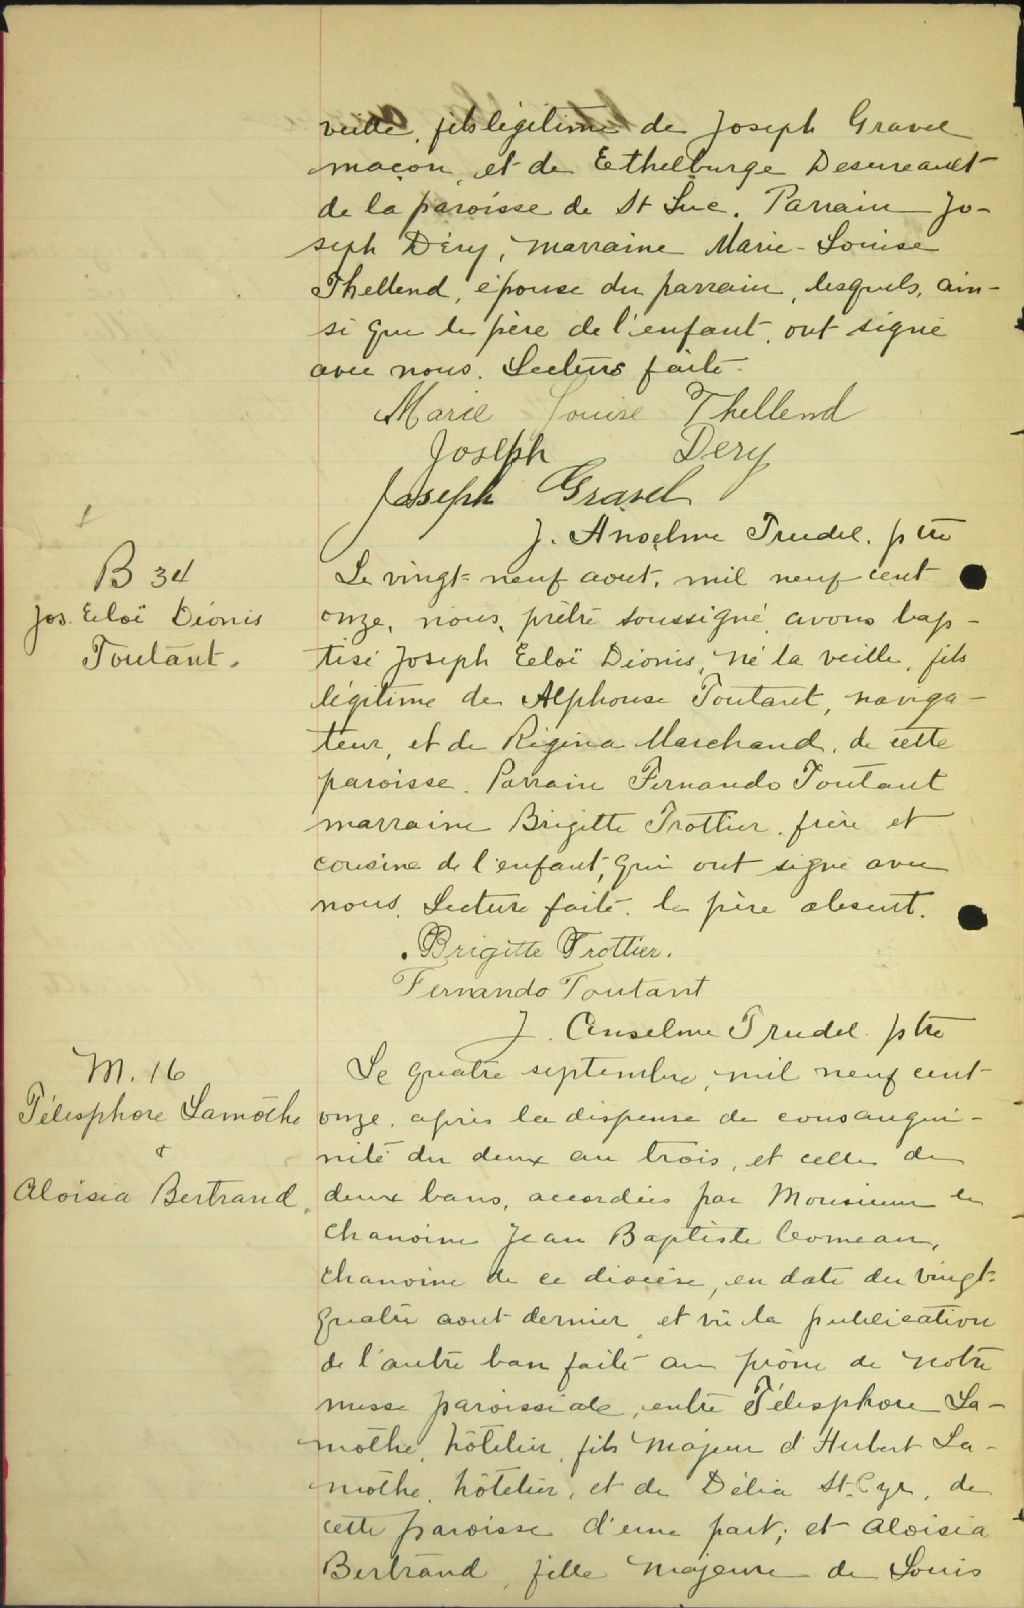 veille, fils légitime de Joseph Gravel
maçon, et de Ethelburge Desureault
de la paroisse de St Luc. Parrain Jo-
seph Déry, marraine Marie-Louise
Thellend, épouse du parrain, lesquels, ain-
si que le père de l'enfant, ont signé
avec nous. Lecture faite.
Marie Louise Thellend
Joseph Dery
Joseph Gravel
J. Anselme Trudel. ptre
B 34
Jos. Eloï Dionis
Toutant.
Le vingt-neuf aout, mil neuf cent
onze, nous, prêtre soussigné, avons bap-
tisé Joseph Eeloï Dionis, né la veille, fils
légitime de Alphonse Toutant, naviga-
teur, et de Régina Marchand, de cette
paroisse. Parrain Fernando Toutant
marraine Brigitte Trottier, frère et
cousine de l'enfant, qui ont signé avec
nous. Lecture faite. le père absent.
Brigitte Trottier.
Fernando Toutant
J. Anselme Trudel. ptre
M. 16
Télesphore Lamothe
&
Aloïsia Bertrand
Le quatre septembre, mil neuf cent
onze, après la dispense de consangui-
nité du deux au trois, et celle de
deux bans, accordées par Monsieur le
chanoine Jean Baptiste Comeau,
chanoine de ce diocèse, en date du vingt-
quatre aout dernier, et vû la publication
de l'autre ban faite au prône de notre
messe paroissiale, entre Télesphore La-
mothe, hôtelier, fils majeur d'Hubert La-
mothe, hôtelier, et de Délia St-Cyr, de
cette paroisse d'une part; et Aloisia
Bertrand, fille majeure de Louis